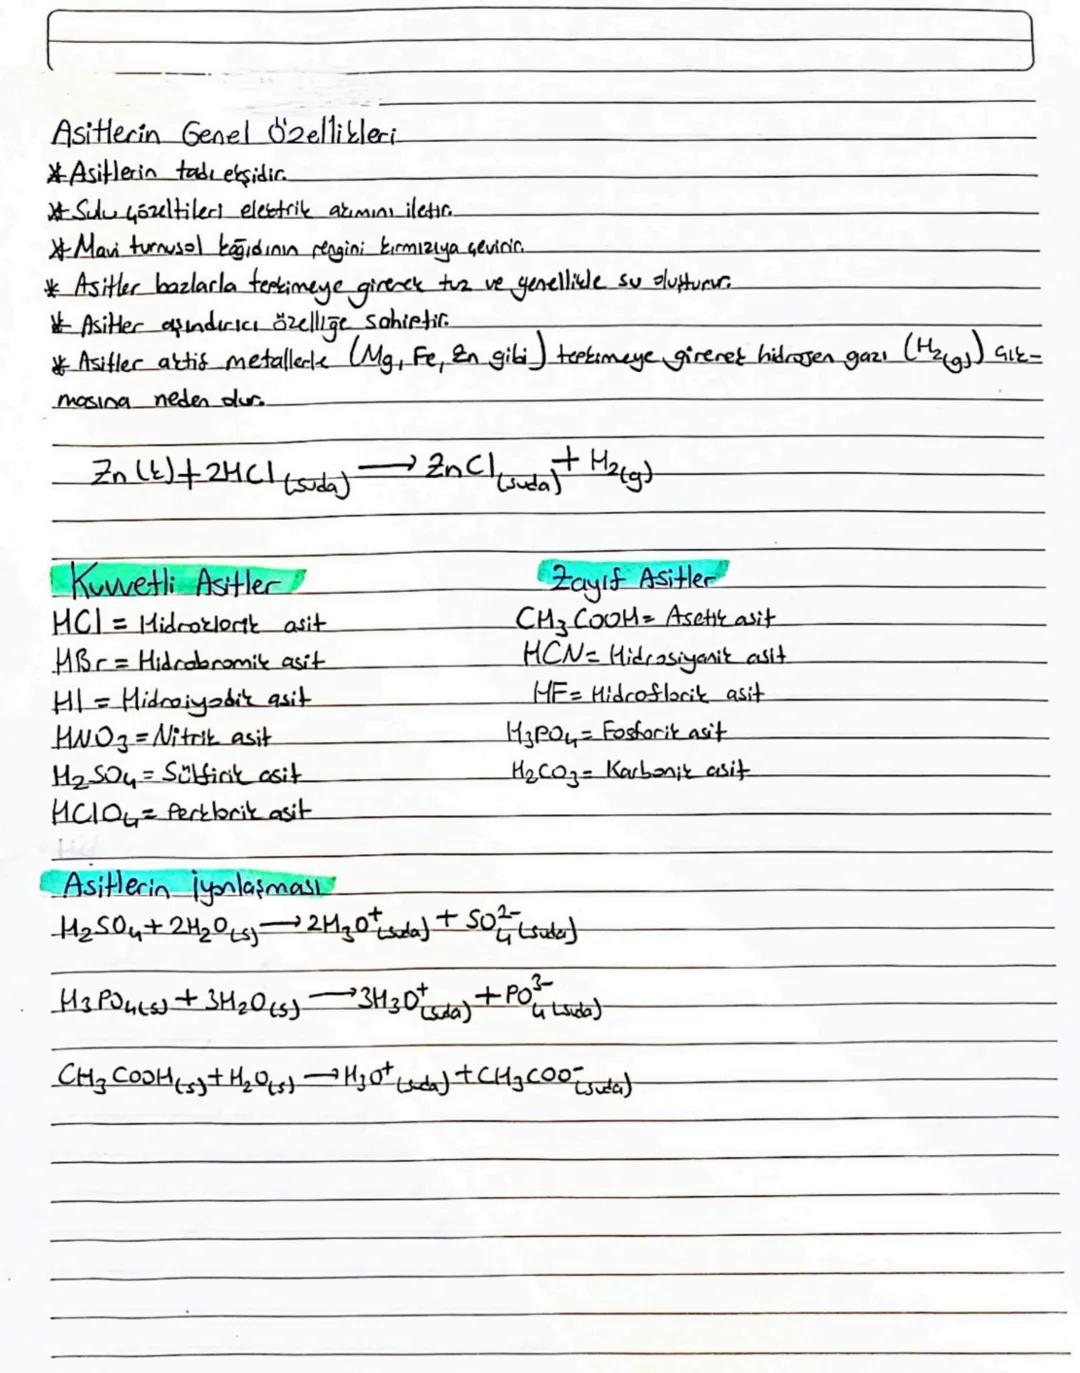 Asitlerin Genel Özellikleri
* Asitlerin tadı ekşidir.
* Sulu çözeltileri elektrik akımını iletir.
* Mavi turnusol kağıdının rengini kırmızıya çevirir.
* Asitler bazlarla tepkimeye girerek tuz ve genellikle su oluşturur.
* Asitler aşındırıcı özelliğe sahiptir.
* Asitler aktif metallerle (Mg, Fe, Zn gibi) tepkimeye girerek hidrojen gazı (H₂(g)) çık-
masına neden olur.
Zn(k) + 2HCl(suda) → ZnCl(suda) + H₂(g)
Kuvvetli Asitler Zayıf Asitler
HCl = Hidroklorik asit CH₃COOH = Asetik asit
HBr = Hidrobromik asit HCN = Hidrosiyanik asit
HI = Hidroiyodik asit HF = Hidroflorik asit
HNO₃ = Nitrik asit H₃PO₄ = Fosforik asit
H₂SO₄ = Sülfirik asit H₂CO₃ = Karbonik asit
HClO₄ = Perklorik asit
Asitlerin iyonlaşması
H₂SO₄ + 2H₂O(s) → 2H₃O⁺(suda) + SO₄²⁻(suda)
H₃PO₄(s) + 3H₂O(s) → 3H₃O⁺(suda) + PO₄³⁻(suda)
CH₃COOH(s) + H₂O(s) → H₃O⁺(suda) + CH₃COO⁻(suda)